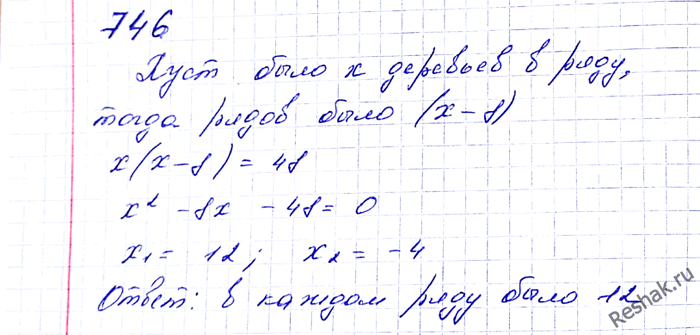 746
Пуст было x деревьев в ряду,
тогда рядов было (x-8)
x(x-8) = 48
x² - 8x - 48 = 0
x₁ = 12; x₂ = -4
Ответ: в каждом ряду было 12
Reshak.ru